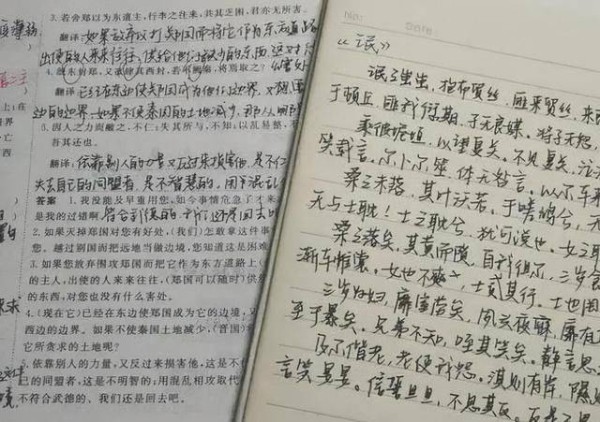 3. 若舍郑以为东道主,行李之往来,共其乏困,君亦无所害。
翻译:如果放弃攻打郑国而将它作为东方道路
出使的人来来往往,供给他们缺少的东西,这对
4. 既东封郑,又欲肆其西封,若不阙秦,将焉取之?
边的边界,如果不使秦国的土地减少,那从哪
5. 因人之力而敝之,不仁;失其所与,不知;以乱易整,
吾其还也。
翻译:依靠别人的力量又反过来损害他,是不仁
失去自己的同盟者,是不智慧的,用混乱
答案 1. 我没能及早重用您,如今事情危急了才来
是我的过错啊
2. 如果灭掉郑国对您有好处,(我们)怎敢拿这件事
您。越过别国而把远地当做边境,您知道这是困难
3. 如果您放弃围攻郑国而把它作为东方道路上(
的主人,出使的人来来往往,(郑国可以随时)供
的东西,对您也没有什么害处。
4. (现在它)已经在东边使郑国成为它的边境,又
西边的边界。如果不使秦国土地减少,(晋国)
它所贪求的土地呢?
5. 依靠别人的力量,又反过来损害他,这是不
己的同盟者,这是不明智的;用混乱相攻取代
不符合武德的、我们还是回去吧。
《氓》
氓之蚩蚩,抱布贸丝。匪来贸丝,来
于顿丘。匪我愆期,子无良媒。将子无怒,
乘彼垝垣,以望复关。不见复关,泣
笑载言。尔卜尔筮,体无咎言。以尔车
桑之未落,其叶沃若。于嗟鸠兮,无
无与士耽!士之耽兮,犹可说也。女之
桑之落矣,其黄而陨。自我徂尔,三岁食
渐车帷裳。女也不爽,士贰其行。士也罔
三岁为妇,靡室劳矣。夙兴夜寐,靡有
至于暴矣。兄弟不知,咥其笑矣。静言思
及尔偕老,老使我怨。淇则有岸,隰
言笑晏晏。信誓旦旦,不思其反。